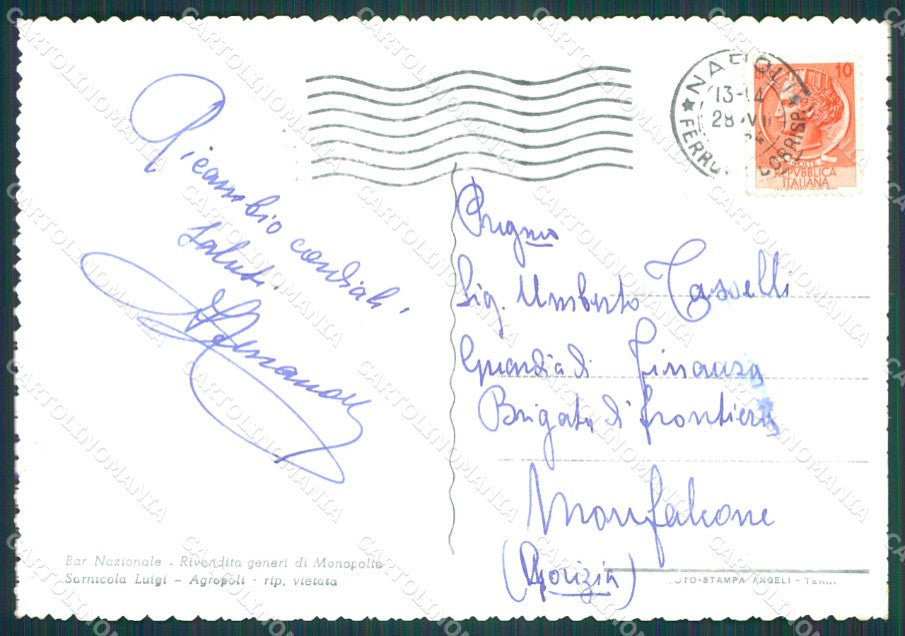 Ricambio cordiali
saluti.
NAPOLI
13-14
28 VII
FERRO CORRISP
10
REPVBBLICA
ITALIANA
Pregmo
Sig. Umberto Casselli
Guardia di Finanza
Brigata di frontiera
Monfalcone
(Gorizia)
Bar Nazionale - Rivendita generi di Monopolio
Sarnicola Luigi - Agropoli - rip. vietata
FOTO-STAMPA ANGELI - TERNI
CARTOLINOMANIA